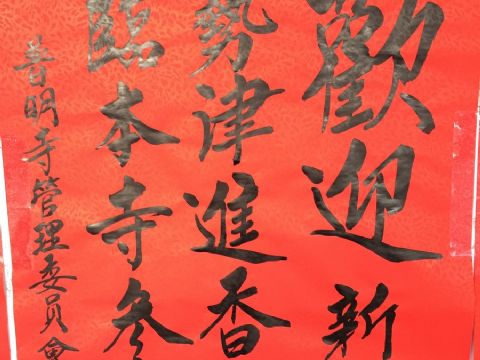 歡迎新
勢津進香
臨本寺參
普明寺管理委員會